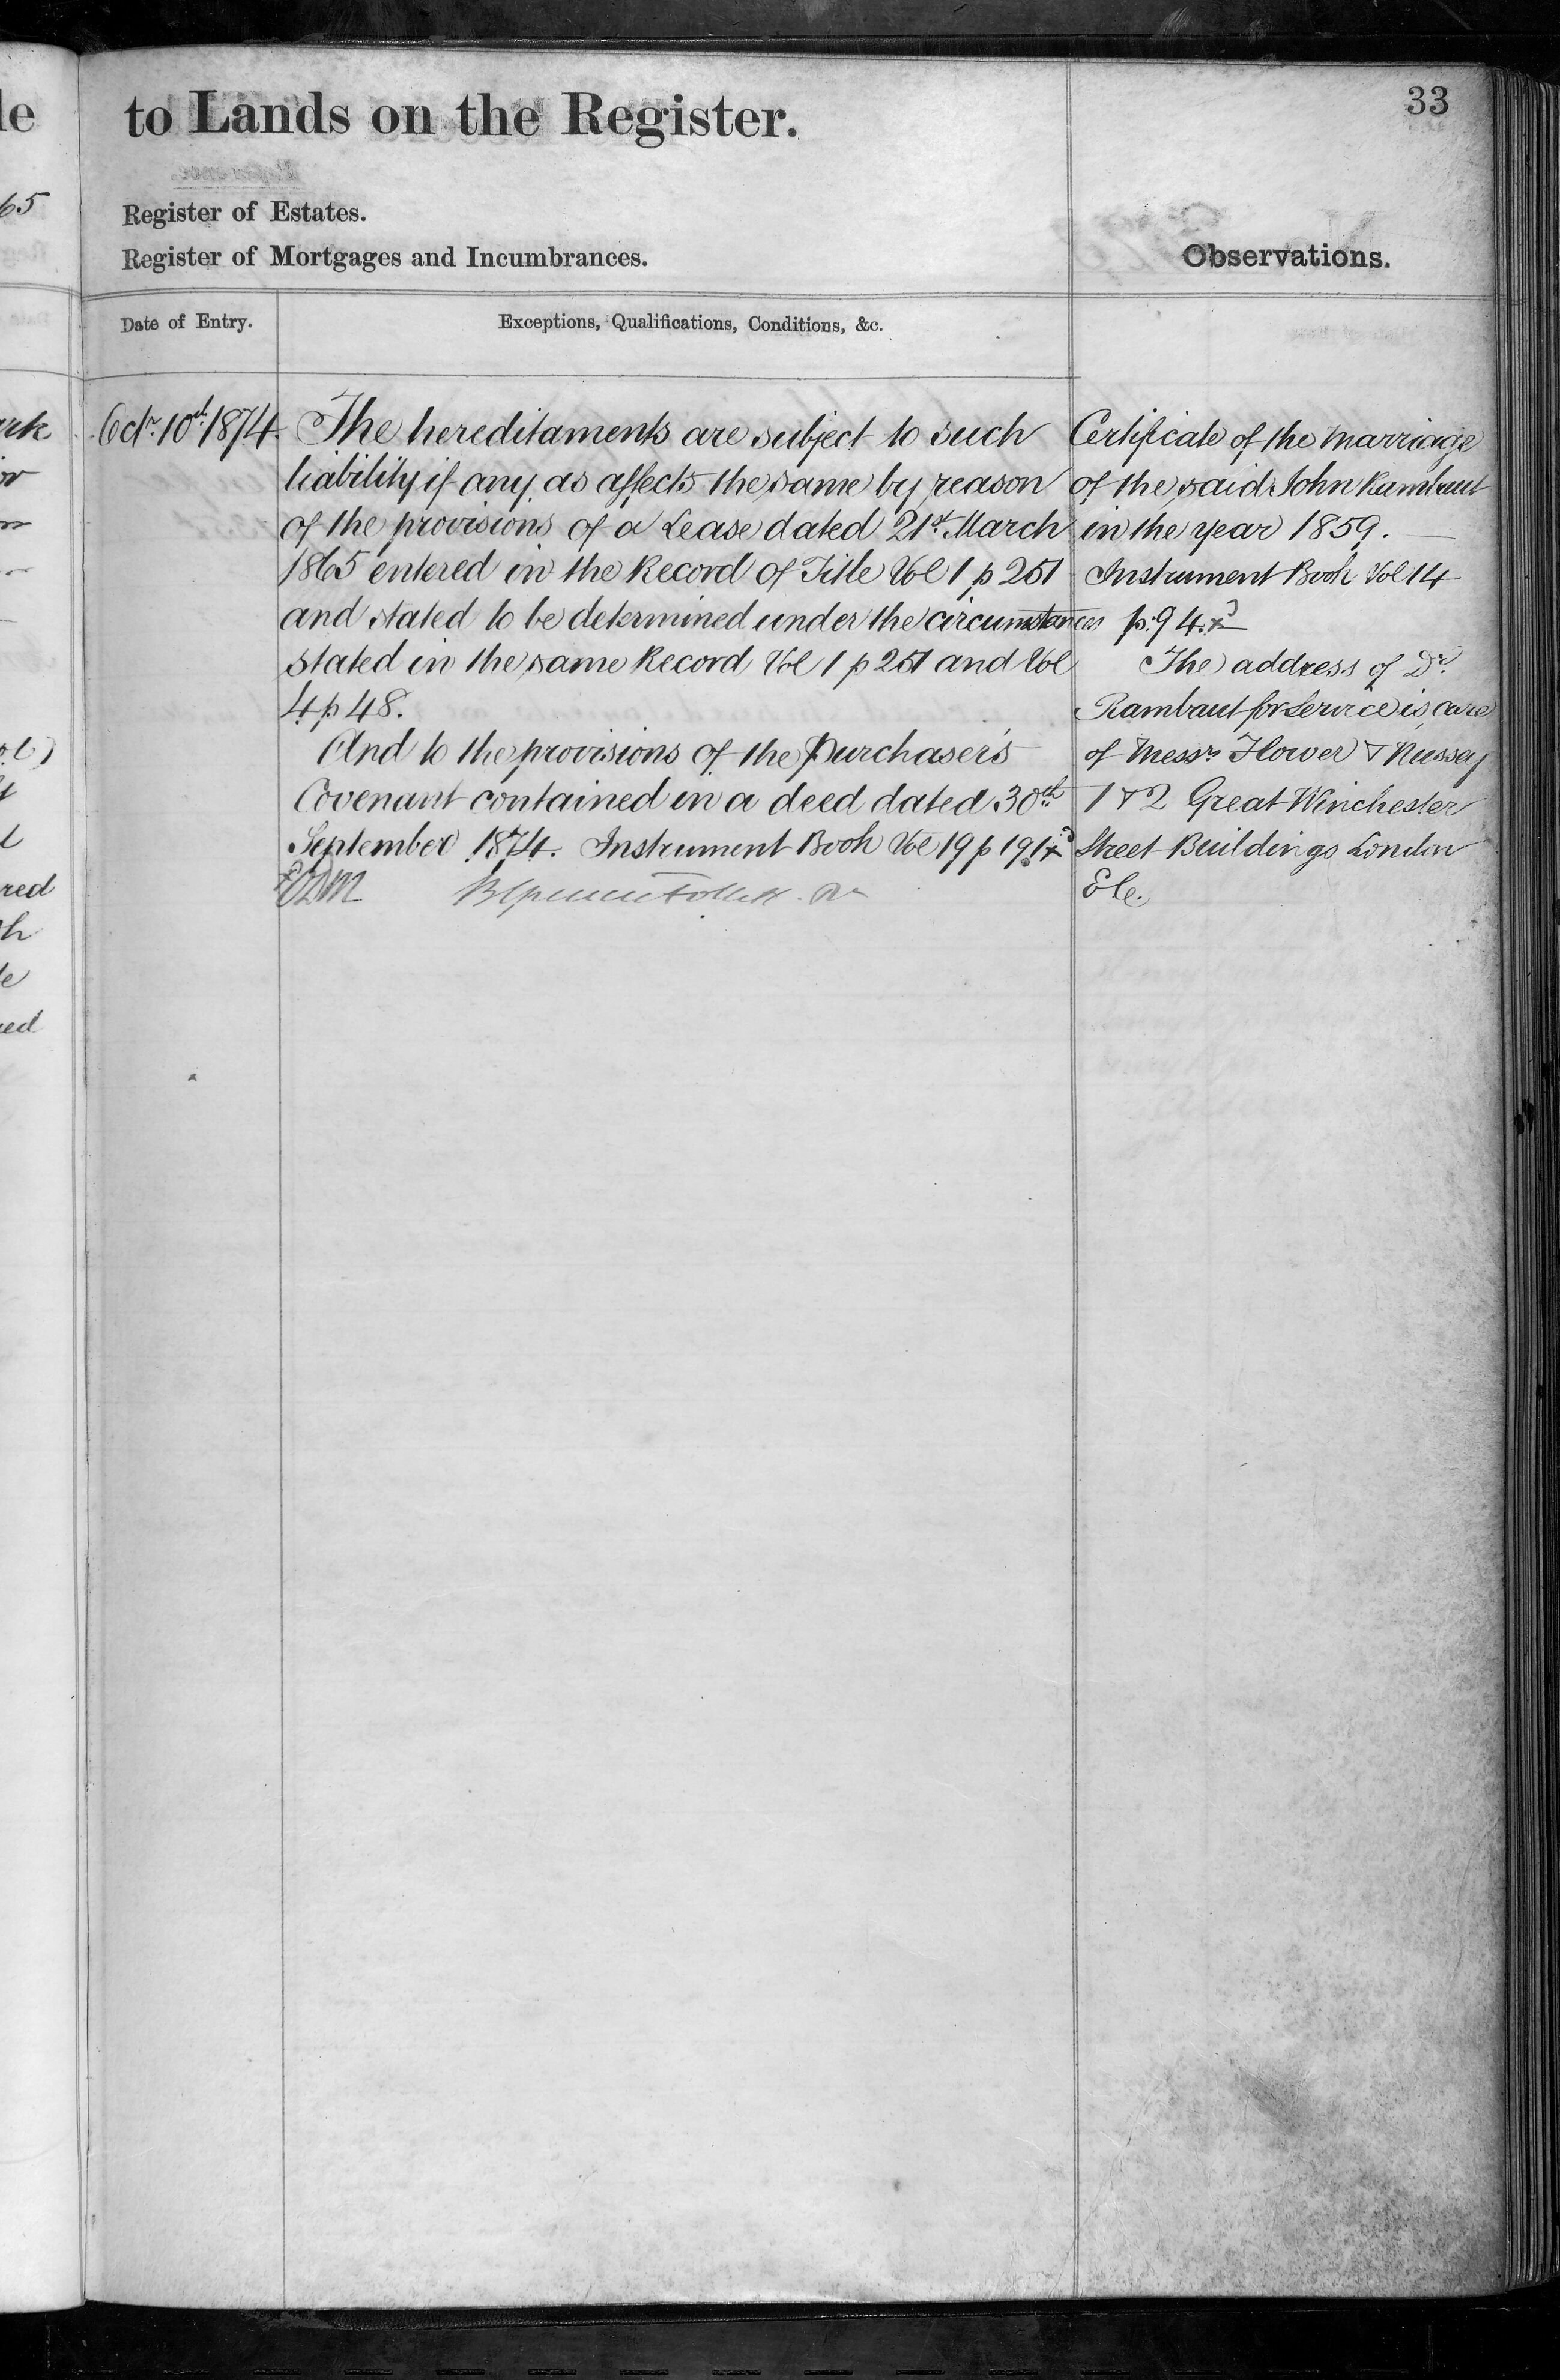 to Lands on the Register.
33
Register of Estates.
Register of Mortgages and Incumbrances.
Observations.
Date of Entry.
Exceptions, Qualifications, Conditions, &c.
Octr. 10th 1874.
The hereditaments are subject to such
liability if any as affects the same by reason
of the provisions of a Lease dated 21st. March
1865 entered in the Record of Title Vol 1 p 251
and stated to be determined under the circumstances
stated in the same Record Vol 1 p 251 and Vol
4 p 48.
And to the provisions of the Purchaser's
Covenant contained in a deed dated 30th.
September 1874. Instrument Book Vol 19 p 191
Certificate of the Marriage
of the said John Rambaut
in the year 1859.
Instrument Book Vol 14
p. 94.
The address of Dr.
Rambaut for Service is care
of Messrs Flower & Nussey
1 & 2 Great Winchester
Street Buildings London
EC.